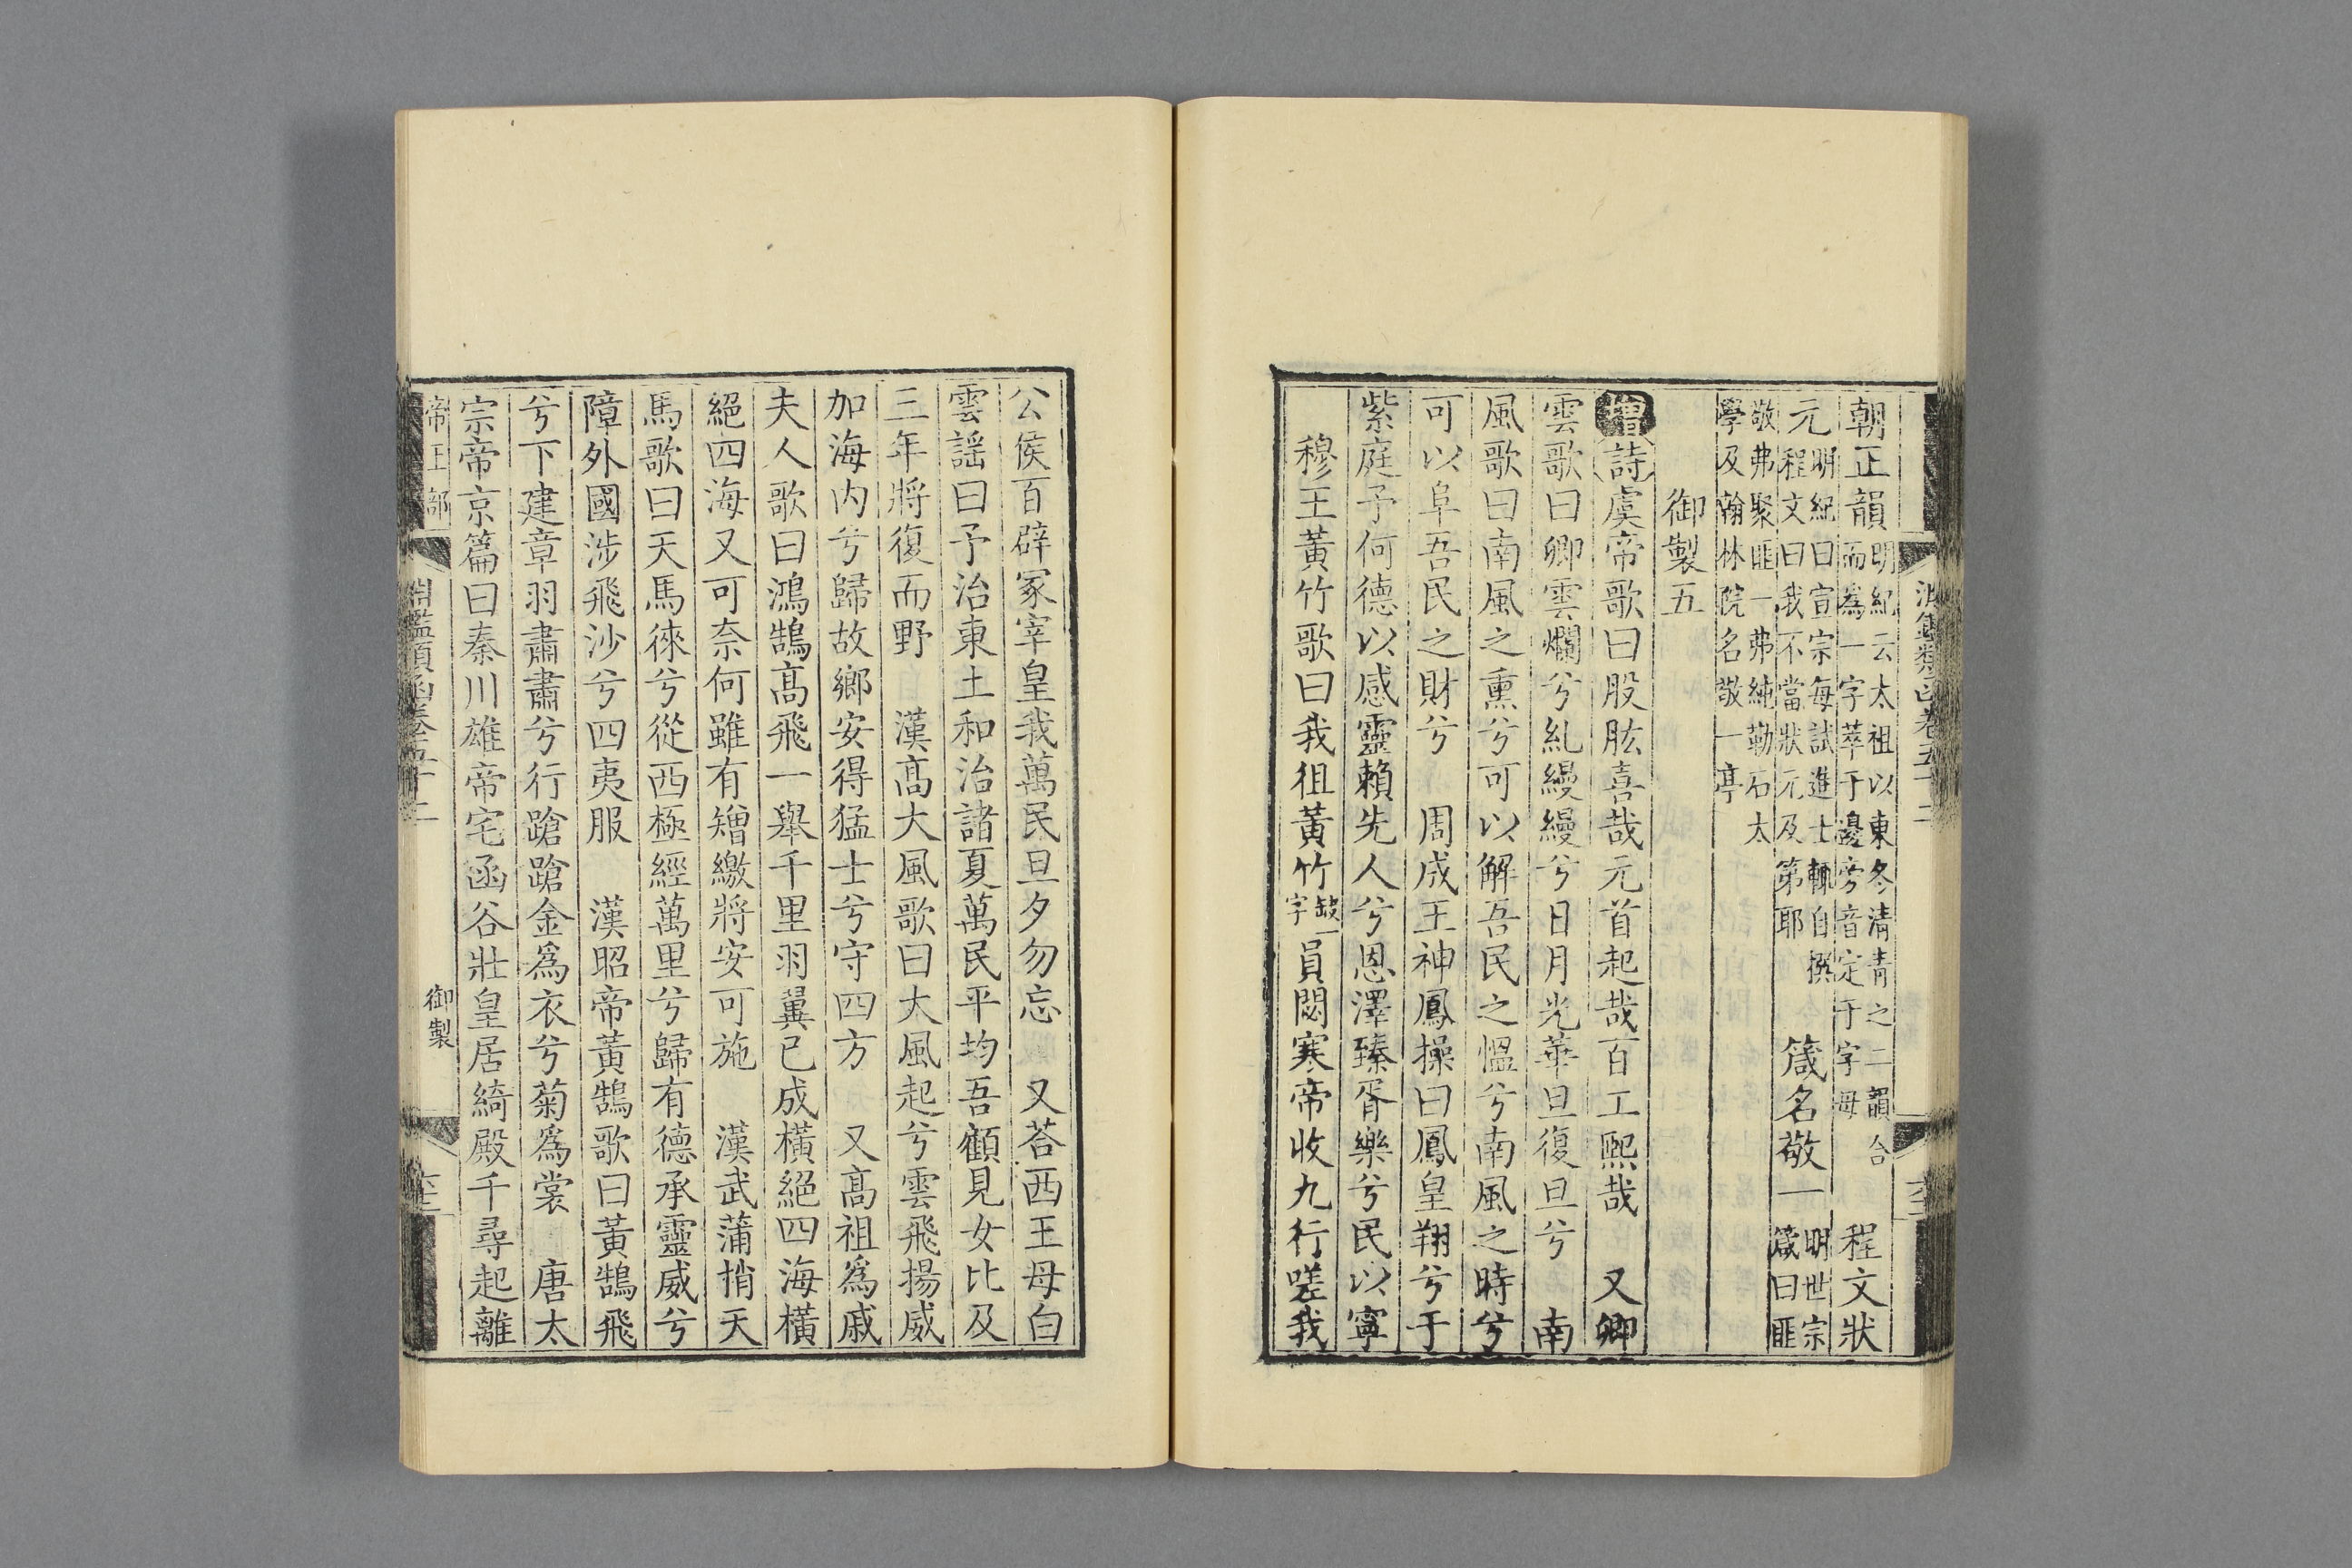 淵鑑類函卷五十二
朝正韻明紀云太祖以東冬淸靑之二韻合而爲一字萃于邊旁音定于字母 程文狀
元明紀曰宣宗每試進士輒自撰程文曰我不當狀元及第耶 箴名敬一明世宗箴曰匪
敬弗聚匪一弗純勒石太學及翰林院名敬一亭
御製五
增詩虞帝歌曰股肱喜哉元首起哉百工熙哉 又卿
雲歌曰卿雲爛兮糺縵縵兮日月光華旦復旦兮 南
風歌曰南風之熏兮可以解吾民之慍兮南風之時兮
可以阜吾民之財兮 周成王神鳳操曰鳳皇翔兮于
紫庭予何德以感靈賴先人兮恩澤臻胥樂兮民以寧
穆王黃竹歌曰我徂黃竹缺一字員閟寒帝收九行嗟我
公侯百辟冢宰皇我萬民旦夕勿忘 又荅西王母白
雲謡曰予治東土和治諸夏萬民平均吾顧見女比及
三年將復而野 漢高大風歌曰大風起兮雲飛揚威
加海内兮歸故鄉安得猛士兮守四方 又高祖爲戚
夫人歌曰鴻鵠高飛一舉千里羽翼已成橫絕四海橫
絕四海又可奈何雖有矰繳將安可施 漢武蒲梢天
馬歌曰天馬徠兮從西極經萬里兮歸有德承靈威兮
障外國涉飛沙兮四夷服 漢昭帝黃鵠歌曰黃鵠飛
兮下建章羽肅肅兮行蹌蹌金爲衣兮菊爲裳 唐太
宗帝京篇曰秦川雄帝宅函谷壯皇居綺殿千尋起離
帝王部 淵鑑類函卷五十二 御製